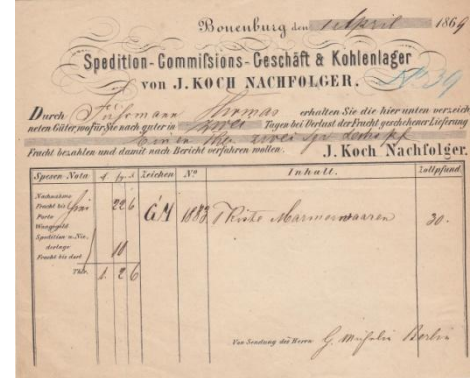 Bonenburg den 1 April 1869
Spedition-Commißions-Geschäft & Kohlenlager
von J. KOCH NACHFOLGER.
No 39
Durch Fuhrmann Thomas erhalten Sie die hier unten verzeich
neten Güter wofür Sie nach guter in zwei Tagen bei Verlust der Fracht geschehener Lieferung
Einen zwei
Fracht bezahlen und damit nach Bericht verfahren wollen. J. Koch Nachfolger.
Spesen Nota Zeichen No Inhalt. Zollpfund.
Nachnahme
Fracht bis frei 22 6 G M 1883 1 Kiste Marmorwaaren 30.
Porto
Waagegeld
Spedition u. Nie-
derlage 10
Fracht bis dort
Thlr. 1. 2 6
Von Sendung des Herrn G. Berlin